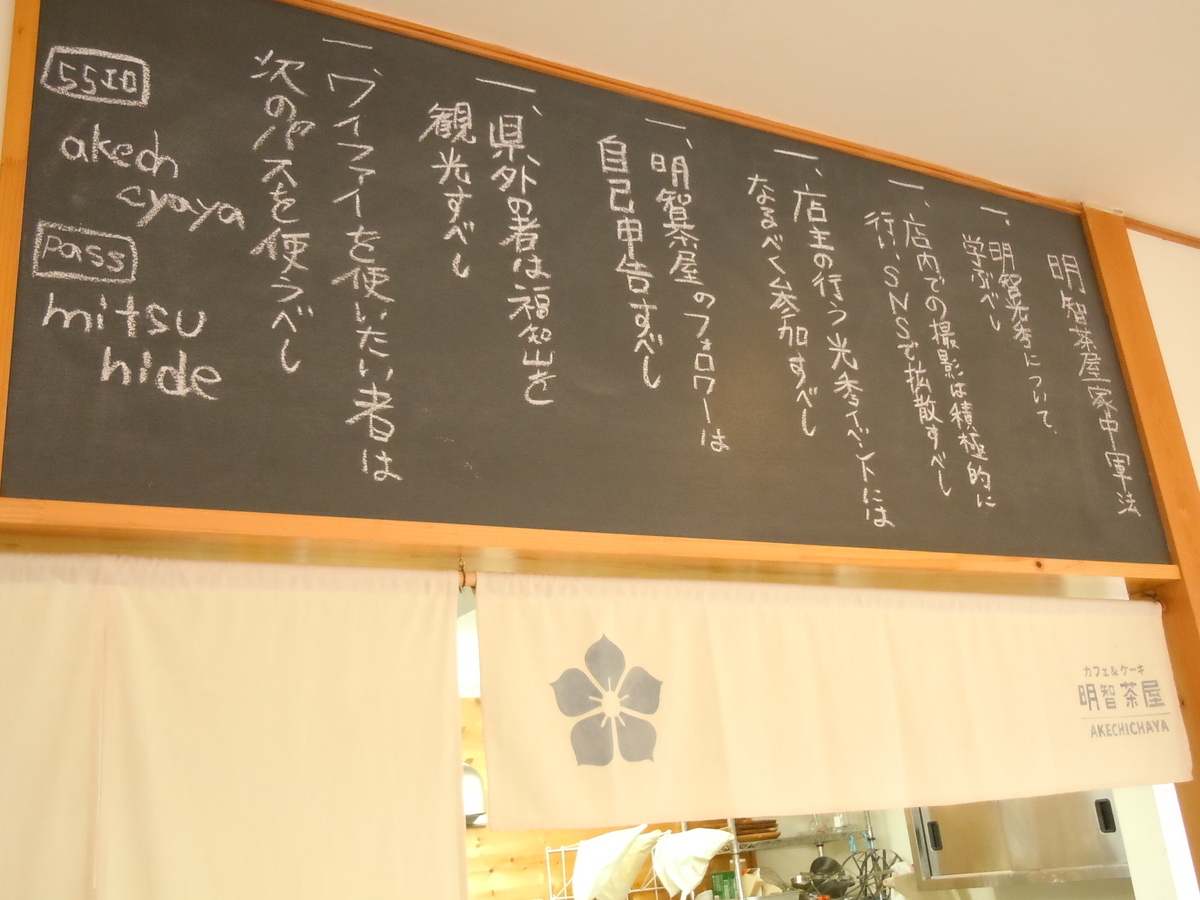 明智茶屋家中軍法
一、明智光秀について、
学ぶべし
一、店内での撮影は積極的に
行い、SNSで拡散すべし
一、店主の行う光秀イベントには
なるべく参加すべし
一、明智茶屋のフォロワーは
自己申告すべし
一、県外の者は福知山を
観光すべし
一、ワイファイを使いたい者は
次のパスを使うべし
SSID
akech
cyaya
pass
mitsu
hide
カフェ&ケーキ
明智茶屋
AKECHICHAYA